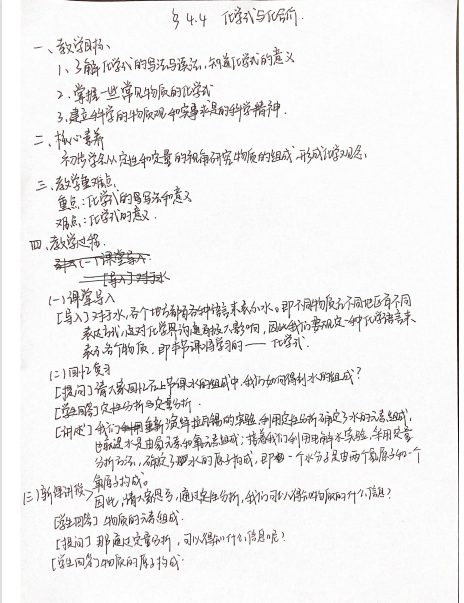 § 4.4 化学式与化合价.
一、教学目标、
1、了解化学式的写法与读法,知道化学式的意义
2、掌握一些常见物质的化学式
3、建立科学的物质观和实事求是的科学精神.
二、核心素养
初步学会从定性和定量的视角研究物质的组成,形成化学观念.
三、教学重难点.
重点:化学式的写法和意义
难点:化学式的意义.
四、教学过程.
(一)课堂导入
[导入]对于水
(一)课堂导入
[导入]对于水,各个地方都有各种语言来表示水。即不同物质在不同地区有不同
表达方式,这对化学界沟通有较大影响,因此我们要规定一种化学语言来
表示各个物质,即本节课将学习的——化学式.
(二)回忆复习
[提问]请大家回忆在上节课水的组成中,我们如何得到水的组成?
[学生回答]定性分析与定量分析.
[讲述]我们重新演绎拉瓦锡的实验,利用定性分析确定了水的元素组成,
水是由氢元素和氧元素组成;接着我们利用电解水实验,采用定量
分析方法,确定了水的原子构成,即一个水分子是由两个氢原子和一个
氧原子构成。
(三)新课讲授>因此,请大家思考,通过定性分析,我们可以得到物质的什么信息?
[学生回答]物质的元素组成.
[提问]那通过定量分析,可以得到什么信息呢?
[学生回答]物质的原子构成.